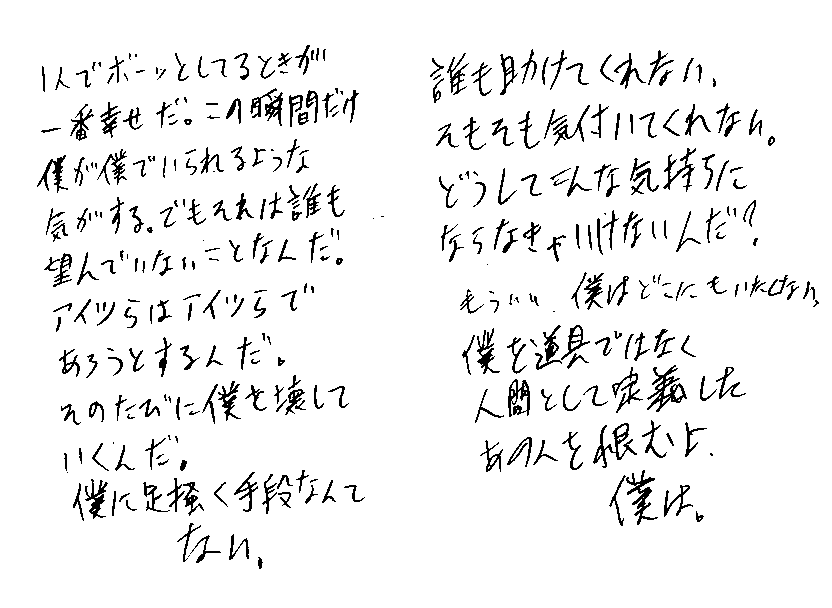 1人でボーッとしてるときが
一番幸せだ。この瞬間だけ
僕が僕でいられるような
気がする。でもそれは誰も
望んでいないことなんだ。
アイツらはアイツらで
あろうとするんだ。
そのたびに僕を壊して
いくんだ。
僕に足掻く手段なんて
ない。
誰も助けてくれない、
そもそも気付いてくれない。
どうしてこんな気持ちに
ならなきゃいけないんだ?
もういい、僕はどこにもいたくない。
僕を道具ではなく
人間として定義した
あの人を恨むよ、
僕は。